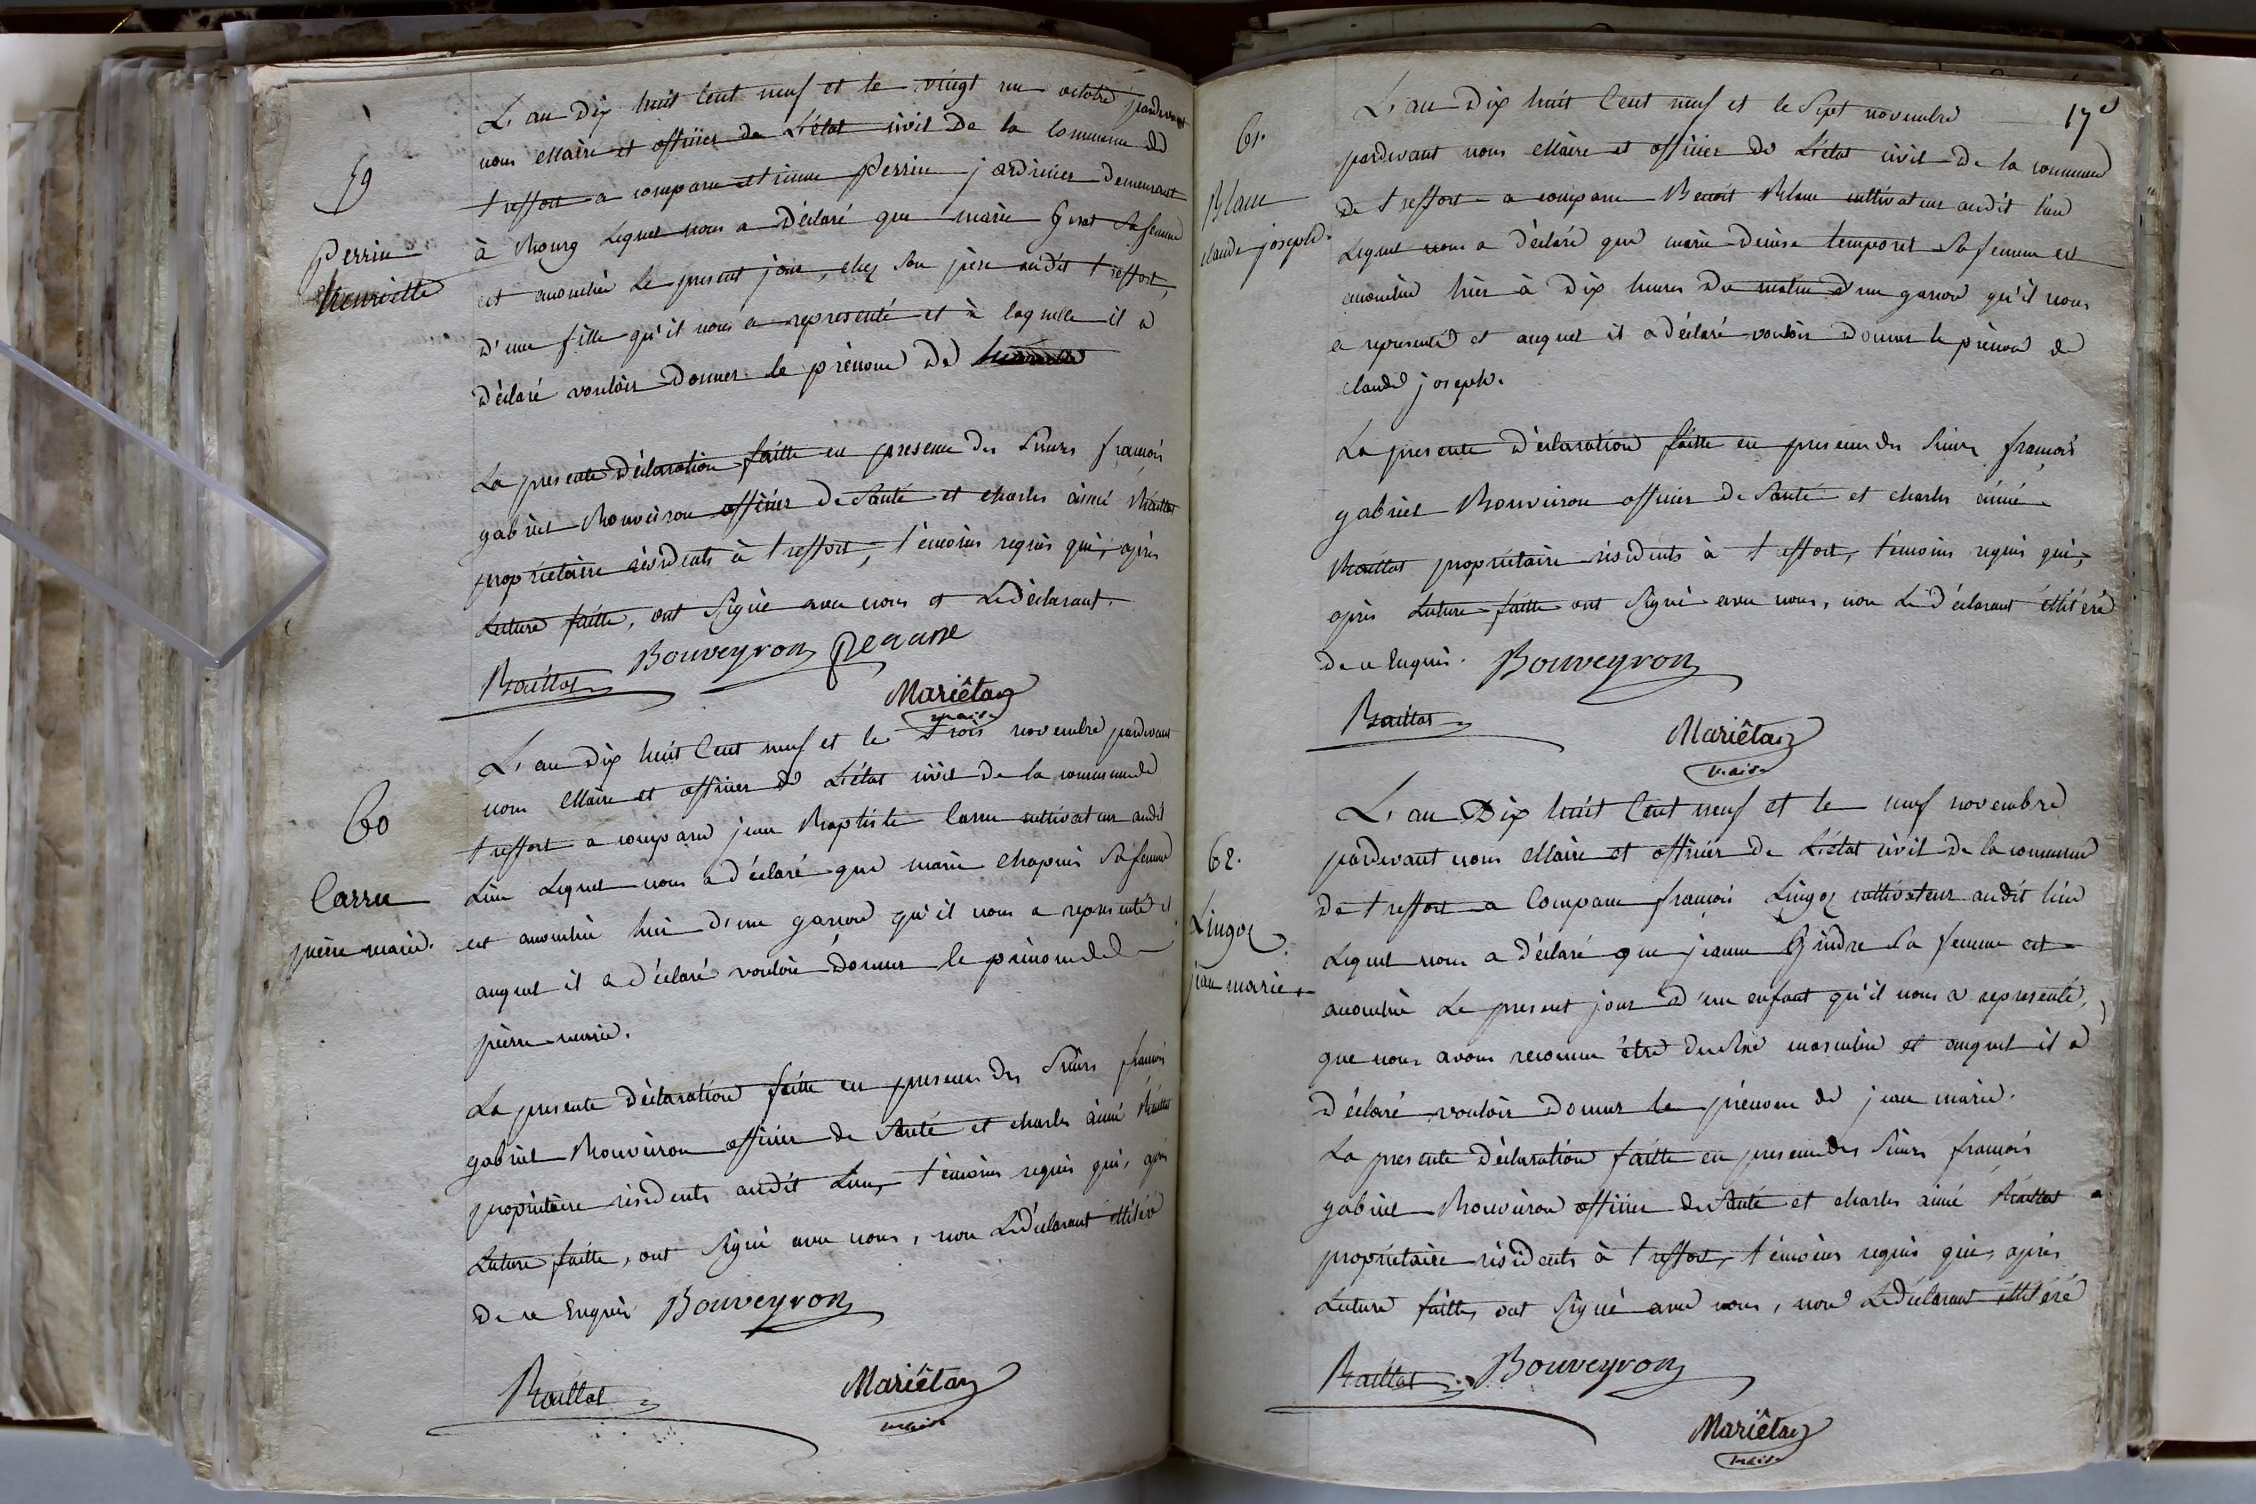 59
Perrin
henriette
L'an Dix huit Cent neuf et le vingt un octobre pardevant
nous Maire et officier de L'état civil De la Commune de
treffort a comparu etienne Perrin jardinier demeurant
à Bourg Lequel nous a Déclaré que marie Sa femme
est accouchée Le présent jour, chez Son père audit treffort,
D'une fille qu'il nous a representé et à laquelle il a
Déclaré vouloir Donner le prénom De henriette
La presente Déclaration faitte en presence des Sieurs francois
gabriel Bouveiron officier De Santé et charles aimé Raillat
propriétaire résidents à treffort, témoins requis qui, après
Lecture faitte, ont Signé avec nous et Le Déclarant.
Raillat Bouveyron
Mariétan
maire
60
Carru
pierre marie.
L'an Dix huit Cent neuf et le trois novembre pardevant
nous Maire et officier de L'état civil De la commune de
treffort a comparu jean Baptiste Carru cultivateur audit
Lieu Lequel nous a déclaré que marie Chapuis Sa femme
est accouchée hier d'un garcon qu'il nous a representé et
auquel il a Déclaré vouloir Donner le prénom de
pierre marie.
La presente Déclaration faitte en presence des Sieurs francois
gabriel Bouveiron officier de Santé et charles aimé Raillat
propriétaire résidents audit Lieu, témoins requis qui, après
Lecture faitte, ont Signé avec nous, non Le Déclarant illitéré
De ce Enquis Bouveyron
Raillat
Mariétan
maire
17
61.
Blanc
claude joseph.
L'an Dix huit Cent neuf et le Sept novembre
pardevant nous Maire et officier de L'état civil De la commune
De treffort a comparu Benoit Blanc cultivateur audit lieu
Lequel nous a déclaré que marie Denise temporel Sa femme est
accouchée hier à Dix heures Du matin D'un garcon qu'il nous
a representé et auquel il a déclaré vouloir Donner le prénom de
claude joseph.
La presente Déclaration faitte en presence des Sieurs francois
gabriel Bouveiron officier de Santé et charles aimé
Raillat propriétaire résidents à treffort, témoins requis qui,
après Lecture faitte ont Signé avec nous, non Le Déclarant illitéré
De ce Enquis. Bouveyron
Raillat
Mariétan
maire
62.
Lingoz
jean marie
L'an Dix huit Cent neuf et le neuf novembre
pardevant nous Maire et officier de L'état civil de la commune
De treffort a Comparu francois Lingoz cultivateur audit lieu
Lequel nous a déclaré que jeanne Gindre Sa femme est
accouchée Le present jour D'un enfant qu'il nous a representé,
que nous avons reconnu être du Sexe masculin et auquel il a
Déclaré vouloir Donner le prénom de jean marie.
La presente Déclaration faitte en presence des Sieurs francois
gabriel Bouveiron officier de Santé et charles aimé Raillat
propriétaire résidents à treffort, témoins requis qui, après
Lecture faitte, ont Signé avec nous, non Le Déclarant illitéré
Raillat Bouveyron
Mariétan
maire